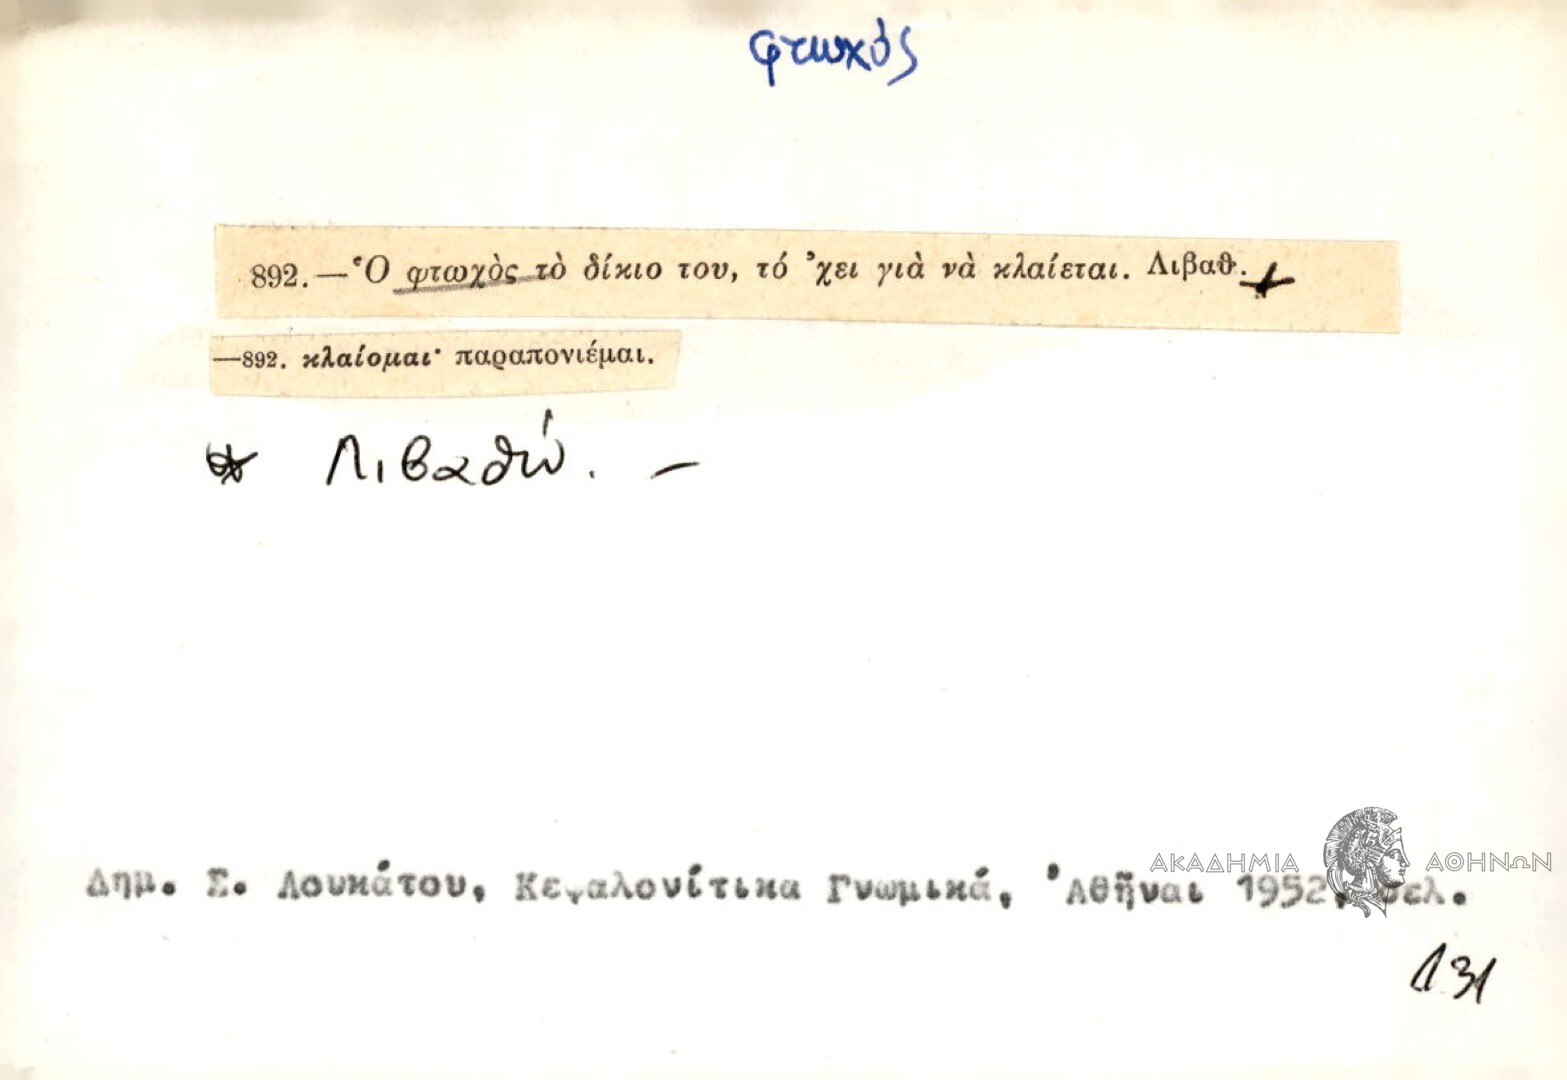 φτωχός
892.—Ὁ φτωχὸς τὸ δίκιο του, τό ᾽χει γιὰ νὰ κλαίεται. Λιβαθ.
—892. κλαίομαι· παραπονιέμαι.
* Λιβαθώ. —
ΑΚΑΔΗΜΙΑ ΑΘΗΝΩΝ
Δημ. Σ. Λουκάτου, Κεφαλονίτικα Γνωμικά, ᾽Αθῆναι 1952, σελ.
131